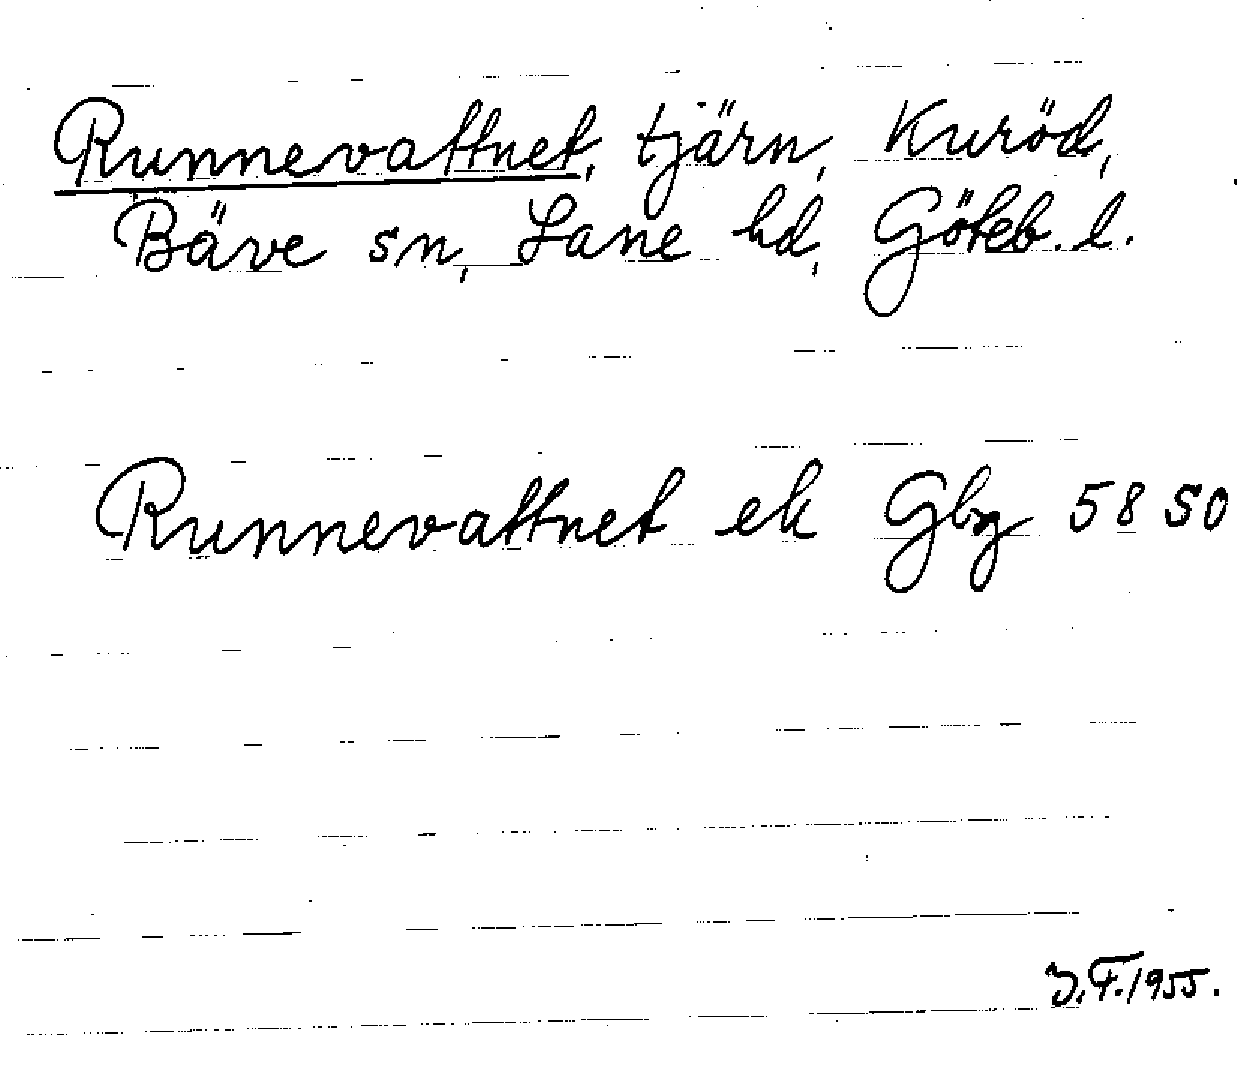 Runnevattnet, tjärn, Kuröd,
Bäve sn, Lane hd, Göteb. l.
Runnevattnet ek Gbg 58 SO
J.F. 1955.